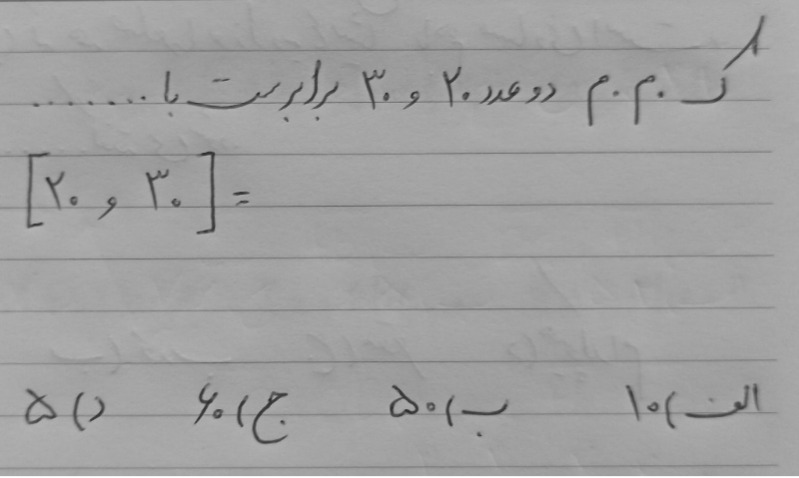 ک.م.م دو عدد ۲۰ و ۳۰ برابرست با ........
[۲۰ و ۳۰] =
الف) ۱۰ ب) ۵۰ ج) ۶۰ د) ۵